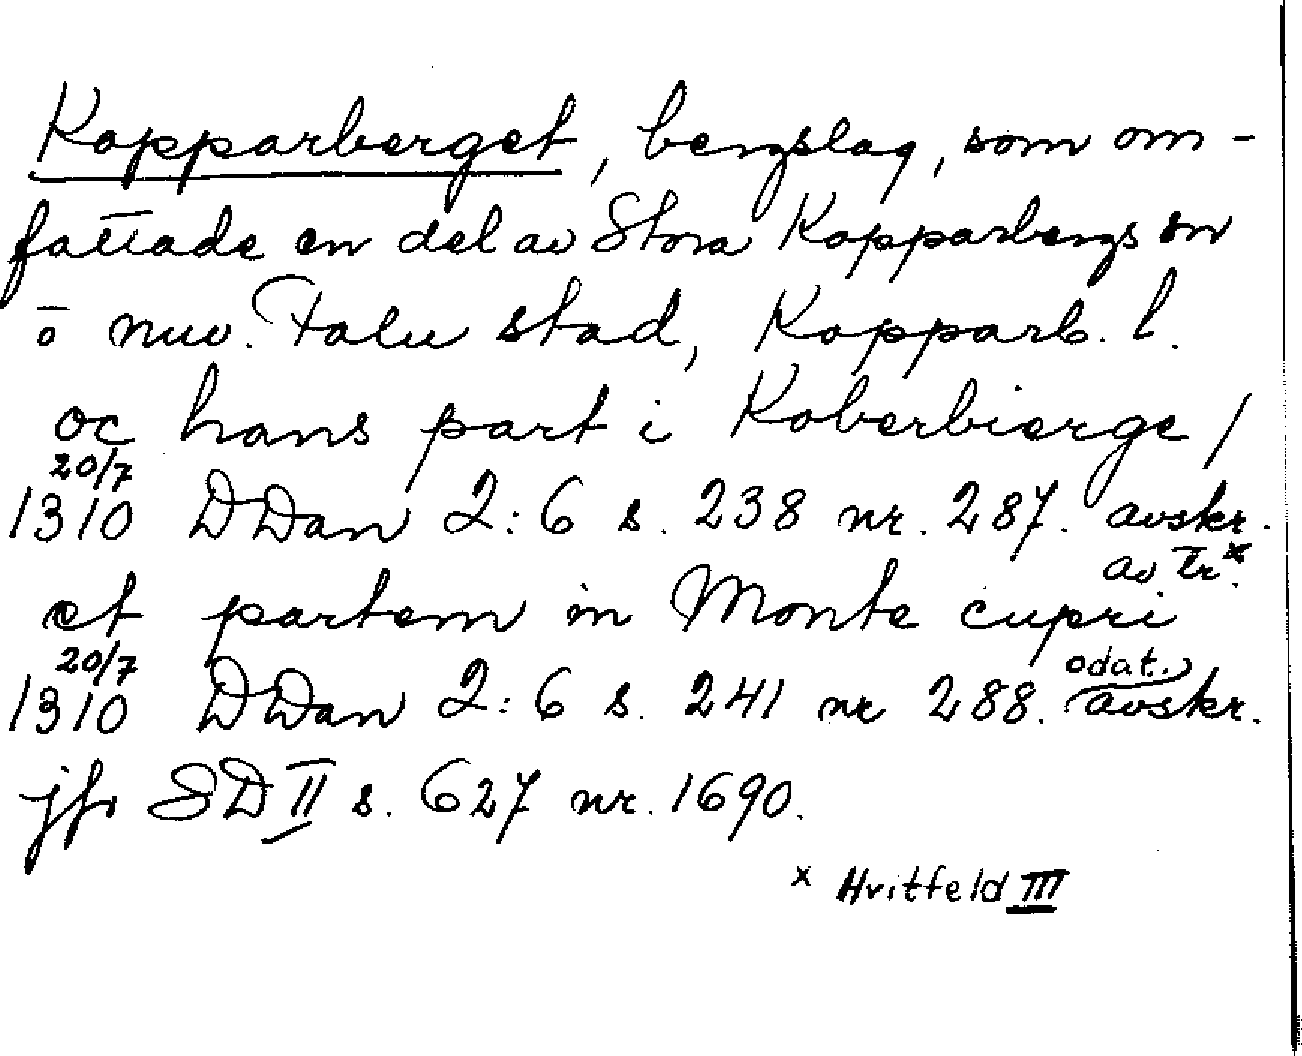 Kopparberget, bergslag, som om-
fattade en del av Stora Kopparbergs sn
o nuv. Falu stad, Kopparb. l.
oc hans part i Koberbierge /
20/7
1310 DDan 2:6 s. 238 nr. 287. avskr.
av tr.x
et partem in Monte cupri
20/7 odat.
1310 DDan 2:6 s. 241 nr 288. avskr.
jfr SD II s. 627 nr. 1690.
x Hvitfeld III